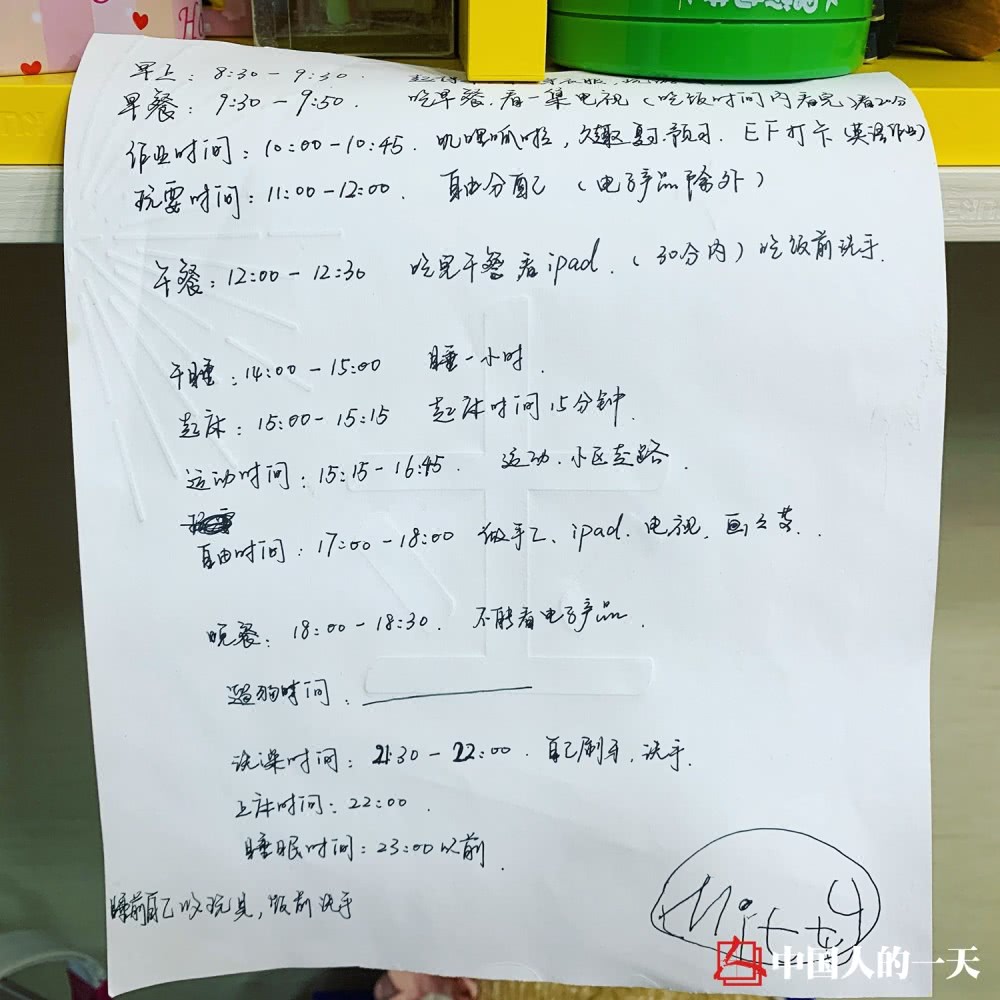 早上：8:30－9:30．
早餐：9:30－9:50．吃早餐．看一集电视（吃饭时间内看完）看20分
作业时间：10:00－10:45．叽哩呱啦，久趣复习．预习．EF打卡（英语作业）
玩耍时间：11:00－12:00．自由分配（电子产品除外）
午餐：12:00－12:30 吃完午餐看ipad．（30分内）吃饭前洗手．
午睡：14:00－15:00 睡一小时．
起床：15:00－15:15 起床时间15分钟．
运动时间：15:15－16:45．运动．小区走路．
自由时间：17:00－18:00 做手工、ipad．电视．画
晚餐：18:00－18:30．不能看电子产品．
遛狗时间：
洗澡时间：21:30－22:00．自己刷牙．洗手．
上床时间：22:00．
睡眠时间：23:00以前．
睡前自己收玩具，饭前洗手
Mitty
中国人的一天